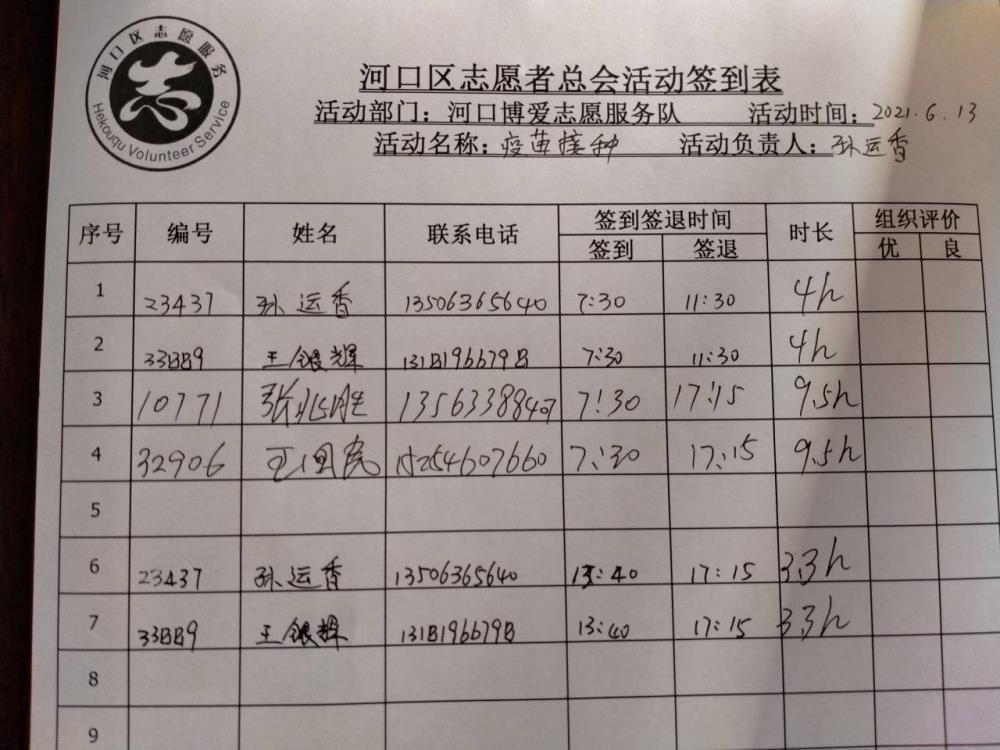 河口区志愿服务
志
Hekouqu Volunteer Service
河口区志愿者总会活动签到表
活动部门：河口博爱志愿服务队 活动时间：2021.6.13
活动名称：疫苗接种 活动负责人：孙运香
序号 编号 姓名 联系电话 签到签退时间 时长 组织评价
签到 签退 优 良
1 23437 孙运香 13506365640 7:30 11:30 4h
2 33889 王银辉 13181966798 7:30 11:30 4h
3 10771 张兆胜 13563388407 7:30 17:15 9.5h
4 32906 王国宾 15254607660 7:30 17:15 9.5h
5
6 23437 孙运香 13506365640 13:40 17:15 3.3h
7 33889 王银辉 13181966798 13:40 17:15 3.3h
8
9